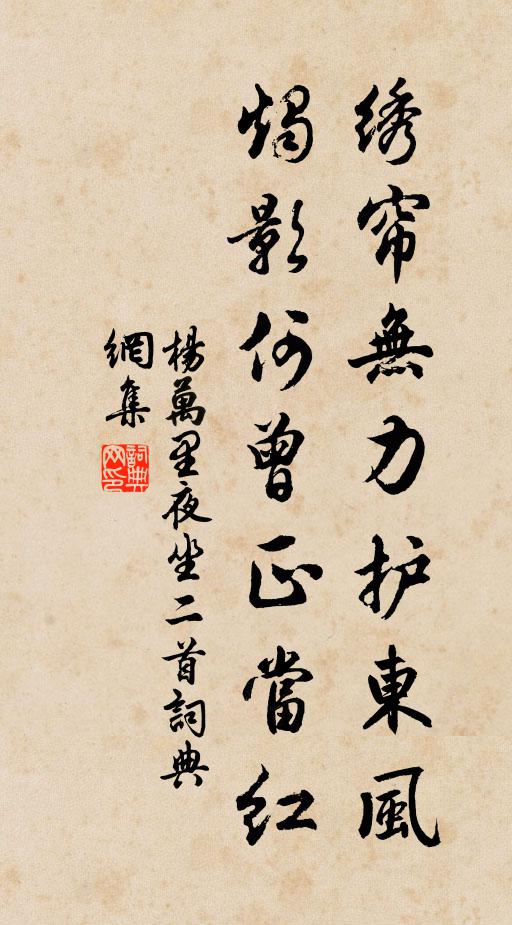 绣帘無力护東風
燭影何曾正當紅
楊萬里夜坐二首詞典
網集
詞典
网印